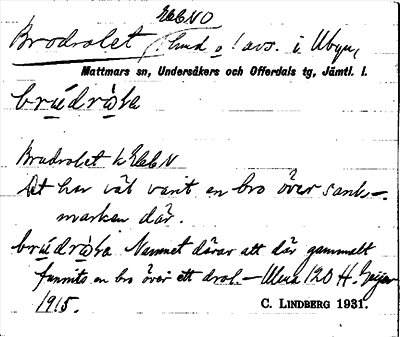 EabNO
Brodralet (hmd o! avs. i Ubyn,
Mattmars sn, Undersåkers och Offerdals tg, Jämtl. l.
brúdràḷa
Brudralet k EabN
Det har väl varit en bro över sank-
marken där.
brúdràḷa Namnet därav att där gammalt
funnits en bro över ett dral. – Ulvsa 120 H. Geijer
1915. C. LINDBERG 1931.